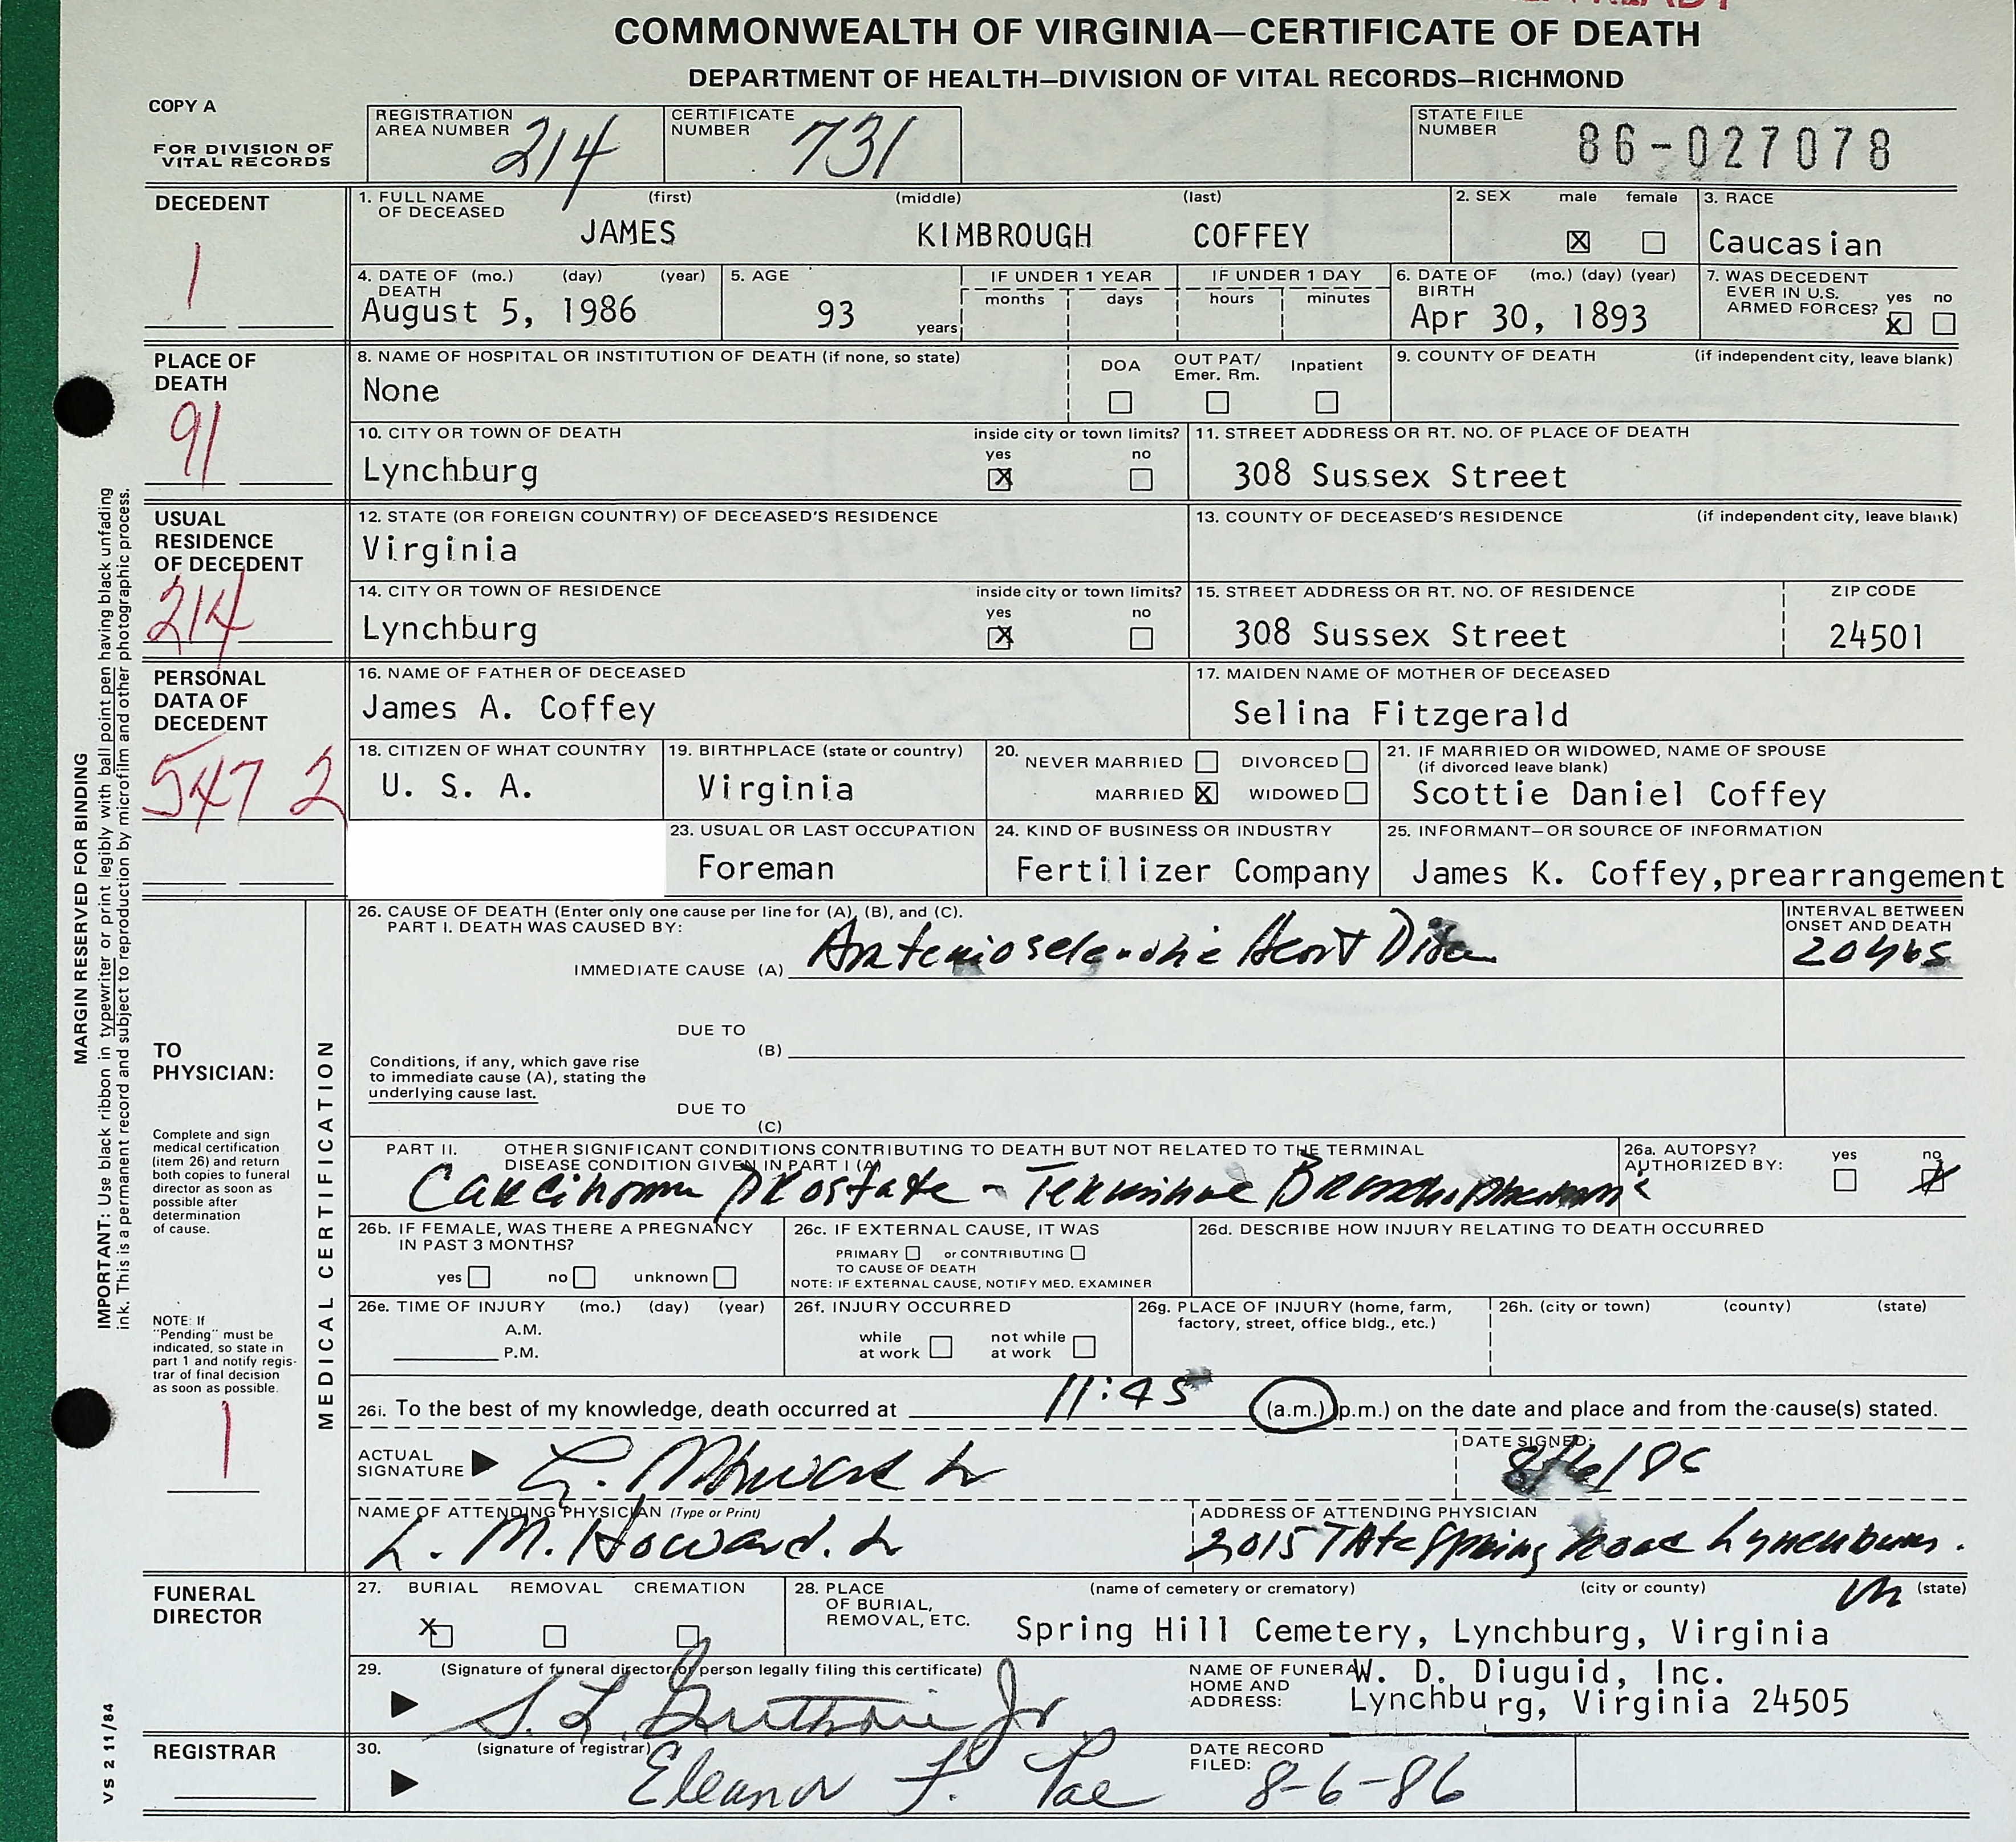 COMMONWEALTH OF VIRGINIA—CERTIFICATE OF DEATH
DEPARTMENT OF HEALTH—DIVISION OF VITAL RECORDS—RICHMOND
COPY A
FOR DIVISION OF
VITAL RECORDS
REGISTRATION
AREA NUMBER 214
CERTIFICATE
NUMBER 731
STATE FILE
NUMBER 86-027078
DECEDENT
1
1. FULL NAME
OF DECEASED
(first) (middle) (last)
JAMES KIMBROUGH COFFEY
2. SEX male female
X
3. RACE
Caucasian
4. DATE OF DEATH (mo.) (day) (year)
August 5, 1986
5. AGE
93 years
IF UNDER 1 YEAR
months days
IF UNDER 1 DAY
hours minutes
6. DATE OF BIRTH (mo.) (day) (year)
Apr 30, 1893
7. WAS DECEDENT
EVER IN U.S.
ARMED FORCES? yes no
X
PLACE OF
DEATH
91
8. NAME OF HOSPITAL OR INSTITUTION OF DEATH (if none, so state)
None
DOA OUT PAT/ Emer. Rm. Inpatient
9. COUNTY OF DEATH (if independent city, leave blank)
10. CITY OR TOWN OF DEATH inside city or town limits?
yes no
Lynchburg X
11. STREET ADDRESS OR RT. NO. OF PLACE OF DEATH
308 Sussex Street
USUAL
RESIDENCE
OF DECEDENT
214
12. STATE (OR FOREIGN COUNTRY) OF DECEASED'S RESIDENCE
Virginia
13. COUNTY OF DECEASED'S RESIDENCE (if independent city, leave blank)
14. CITY OR TOWN OF RESIDENCE inside city or town limits?
yes no
Lynchburg X
15. STREET ADDRESS OR RT. NO. OF RESIDENCE
308 Sussex Street
ZIP CODE
24501
PERSONAL
DATA OF
DECEDENT
547 2
16. NAME OF FATHER OF DECEASED
James A. Coffey
17. MAIDEN NAME OF MOTHER OF DECEASED
Selina Fitzgerald
18. CITIZEN OF WHAT COUNTRY
U. S. A.
19. BIRTHPLACE (state or country)
Virginia
20.
NEVER MARRIED DIVORCED
MARRIED X WIDOWED
21. IF MARRIED OR WIDOWED, NAME OF SPOUSE
(if divorced leave blank)
Scottie Daniel Coffey
23. USUAL OR LAST OCCUPATION
Foreman
24. KIND OF BUSINESS OR INDUSTRY
Fertilizer Company
25. INFORMANT—OR SOURCE OF INFORMATION
James K. Coffey,prearrangement
MARGIN RESERVED FOR BINDING
IMPORTANT: Use black ribbon in typewriter or print legibly with ball point pen having black unfading
ink. This is a permanent record and subject to reproduction by microfilm and other photographic process.
VS 2 11/84
TO
PHYSICIAN:
Complete and sign
medical certification
(item 26) and return
both copies to funeral
director as soon as
possible after
determination
of cause.
NOTE: If
"Pending" must be
indicated, so state in
part 1 and notify regis-
trar of final decision
as soon as possible.
1
MEDICAL CERTIFICATION
26. CAUSE OF DEATH (Enter only one cause per line for (A), (B), and (C).
PART I. DEATH WAS CAUSED BY:
INTERVAL BETWEEN
ONSET AND DEATH
IMMEDIATE CAUSE (A) Arteriosclerotic Heart 20 yrs
DUE TO
(B)
Conditions, if any, which gave rise
to immediate cause (A), stating the
underlying cause last.
DUE TO
(C)
PART II. OTHER SIGNIFICANT CONDITIONS CONTRIBUTING TO DEATH BUT NOT RELATED TO THE TERMINAL
DISEASE CONDITION GIVEN IN PART I (A)
Carcinoma Prostate - Terminal
26a. AUTOPSY? yes no
AUTHORIZED BY: X
26b. IF FEMALE, WAS THERE A PREGNANCY
IN PAST 3 MONTHS?
yes no unknown
26c. IF EXTERNAL CAUSE, IT WAS
PRIMARY or CONTRIBUTING
TO CAUSE OF DEATH
NOTE: IF EXTERNAL CAUSE, NOTIFY MED. EXAMINER
26d. DESCRIBE HOW INJURY RELATING TO DEATH OCCURRED
26e. TIME OF INJURY (mo.) (day) (year)
A.M.
P.M.
26f. INJURY OCCURRED
while at work not while at work
26g. PLACE OF INJURY (home, farm,
factory, street, office bldg., etc.)
26h. (city or town) (county) (state)
26i. To the best of my knowledge, death occurred at 11:45 (a.m.) (p.m.) on the date and place and from the cause(s) stated.
ACTUAL
SIGNATURE
DATE SIGNED:
8/6/86
NAME OF ATTENDING PHYSICIAN (Type or Print)
L. M. Howard. Jr
ADDRESS OF ATTENDING PHYSICIAN
2015 Tate Spring Road Lynchburg.
FUNERAL
DIRECTOR
27. BURIAL REMOVAL CREMATION
X
28. PLACE
OF BURIAL,
REMOVAL, ETC.
(name of cemetery or crematory) (city or county) (state)
Spring Hill Cemetery, Lynchburg, Virginia
29. (Signature of funeral director or person legally filing this certificate)
S. L. Guthrie Jr.
NAME OF FUNERAL
HOME AND
ADDRESS:
W. D. Diuguid, Inc.
Lynchburg, Virginia 24505
REGISTRAR
30. (signature of registrar)
Eleanor F. Pae
DATE RECORD
FILED: 8-6-86